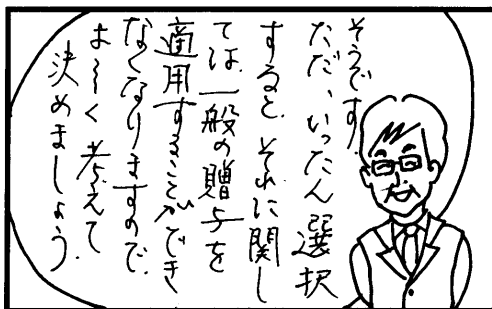 そうです
ただ、いったん選択
すると、それに関し
ては、一般の贈与を
適用することができ
なくなりますので、
よーく考えて
決めましょう。